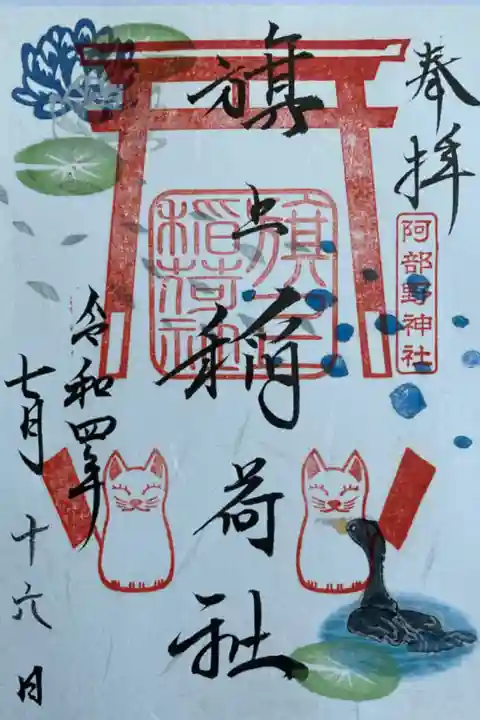 奉拝
阿部野神社
旗上稲荷社
旗上
稲荷社
令和四年
七月十六日